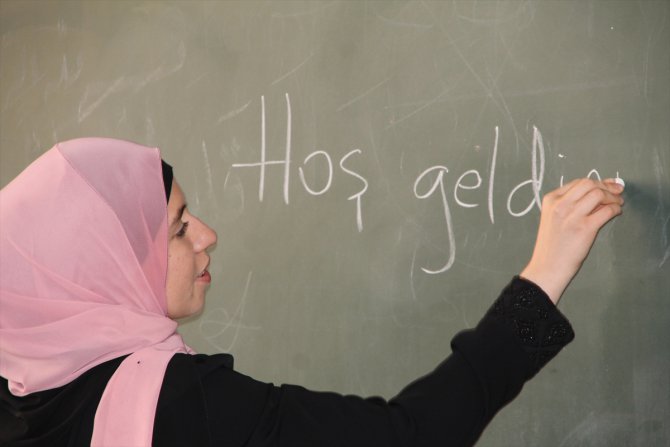 Hoş geldin